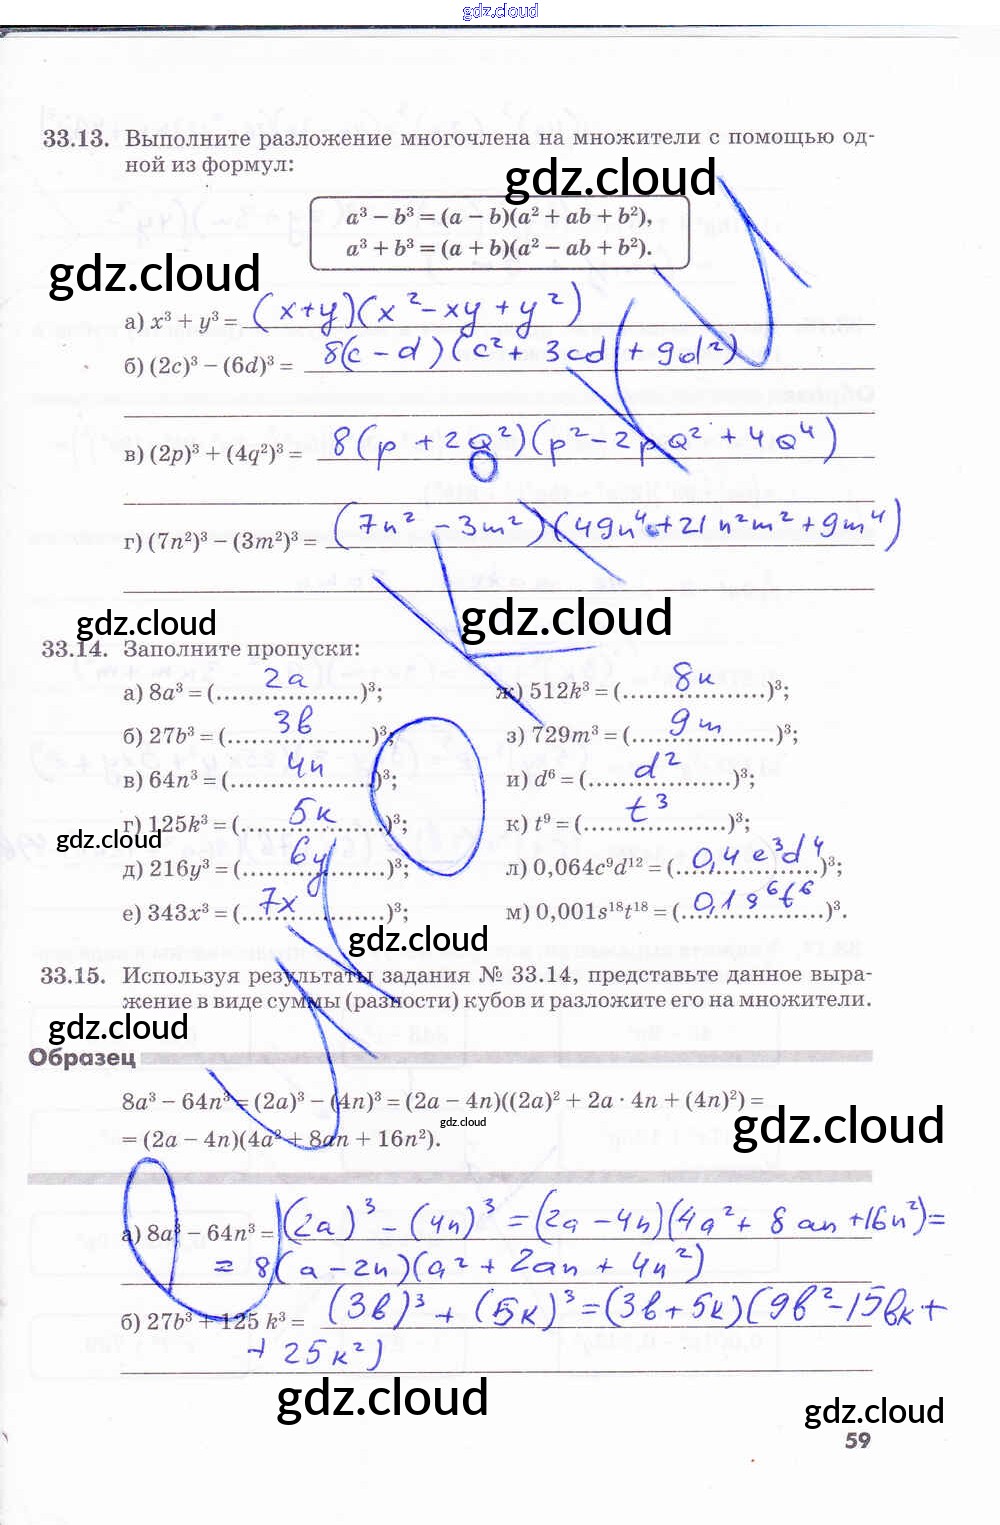 gdz.cloud
33.13. Выполните разложение многочлена на множители с помощью од-
ной из формул:
gdz.cloud
a³ − b³ = (a − b)(a² + ab + b²),
a³ + b³ = (a + b)(a² − ab + b²).
gdz.cloud
а) x³ + y³ = (x+y)(x²−xy+y²)
б) (2c)³ − (6d)³ = 8(c−d)(c²+3cd+9d²)
в) (2p)³ + (4q²)³ = 8(p+2q²)(p²−2pq²+4q⁴)
г) (7n²)³ − (3m²)³ = (7n²−3m²)(49n⁴+21n²m²+9m⁴)
gdz.cloud
gdz.cloud
33.14. Заполните пропуски:
а) 8a³ = (2a)³; ж) 512k³ = (8k)³;
б) 27b³ = (3b)³; з) 729m³ = (9m)³;
в) 64n³ = (4n)³; и) d⁶ = (d²)³;
г) 125k³ = (5k)³; к) t⁹ = (t³)³;
gdz.cloud
д) 216y³ = (6y)³; л) 0,064c⁹d¹² = (0,4c³d⁴)³;
е) 343x³ = (7x)³; м) 0,001s¹⁸t¹⁸ = (0,1s⁶t⁶)³.
gdz.cloud
33.15. Используя результаты задания № 33.14, представьте данное выра-
жение в виде суммы (разности) кубов и разложите его на множители.
gdz.cloud
Образец
8a³ − 64n³ = (2a)³ − (4n)³ = (2a − 4n)((2a)² + 2a · 4n + (4n)²) =
gdz.cloud
gdz.cloud
= (2a − 4n)(4a² + 8an + 16n²).
а) 8a³ − 64n³ = (2a)³ − (4n)³ = (2a−4n)(4a²+8an+16n²)=
= 8(a−2n)(a²+2an+4n²)
б) 27b³ + 125 k³ = (3b)³ + (5k)³ = (3b+5k)(9b²−15bk+
+25k²)
gdz.cloud
gdz.cloud
59